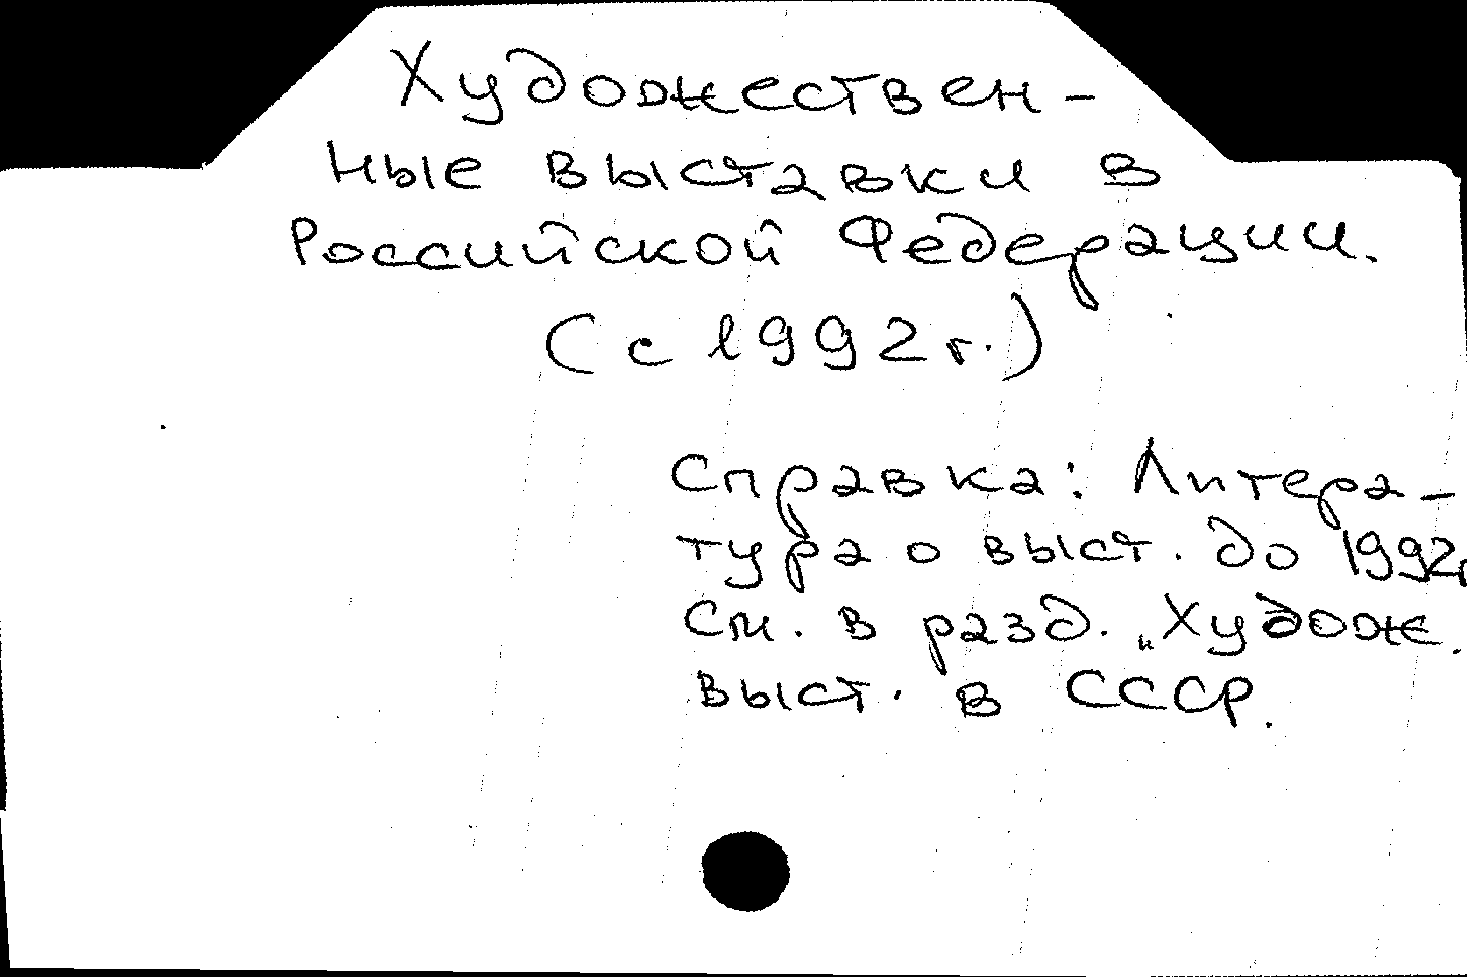 Художествен-
ные выставки в
Российской Федерации.
(с 1992 г.)
Справка: Литера-
тура о выст. до 1992г
См. в разд. „Худож.
выст. в СССР.